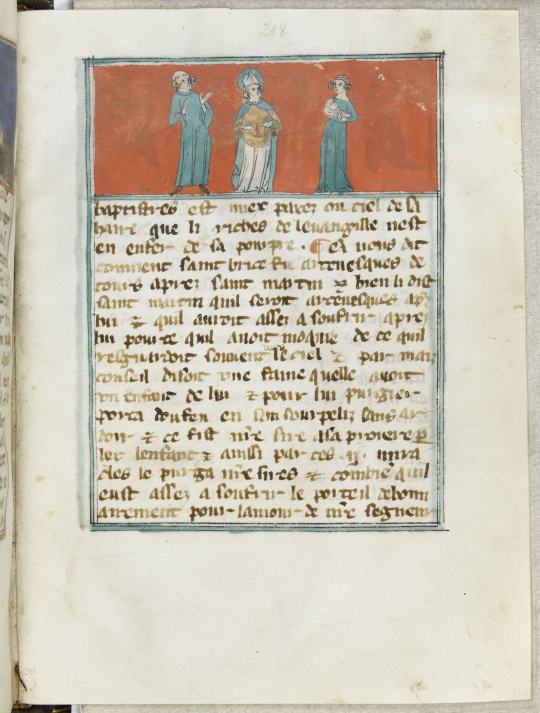 218
baptistres est miex parez ou ciel de sa
haire que li riches de leuangille nest
en enfer de sa pourpre . Cest nous dit
comment saint brice fu arceuesques de
tours apres saint martin ⁊ bien li dist
saint martin quil seroit arceuesques apres
lui ⁊ quil auroit assez a soufrir apres
lui pour ce quil auoit moquie de ce quil
resguardoit souuent le ciel ⁊ par mau
conseil disoit une fame quelle auoit
un enfant de lui ⁊ pour lui purgier
porta dou feu en son sourpeliz sans ar
doir ⁊ ce fist nre sire a sa proiere p
ler lenfant ⁊ ainsi par ces .ij. mira
cles le purga nre sires ⁊ combien quil
eust assez a soufrir le porta il debon
airement pour lamour de nre seigneur